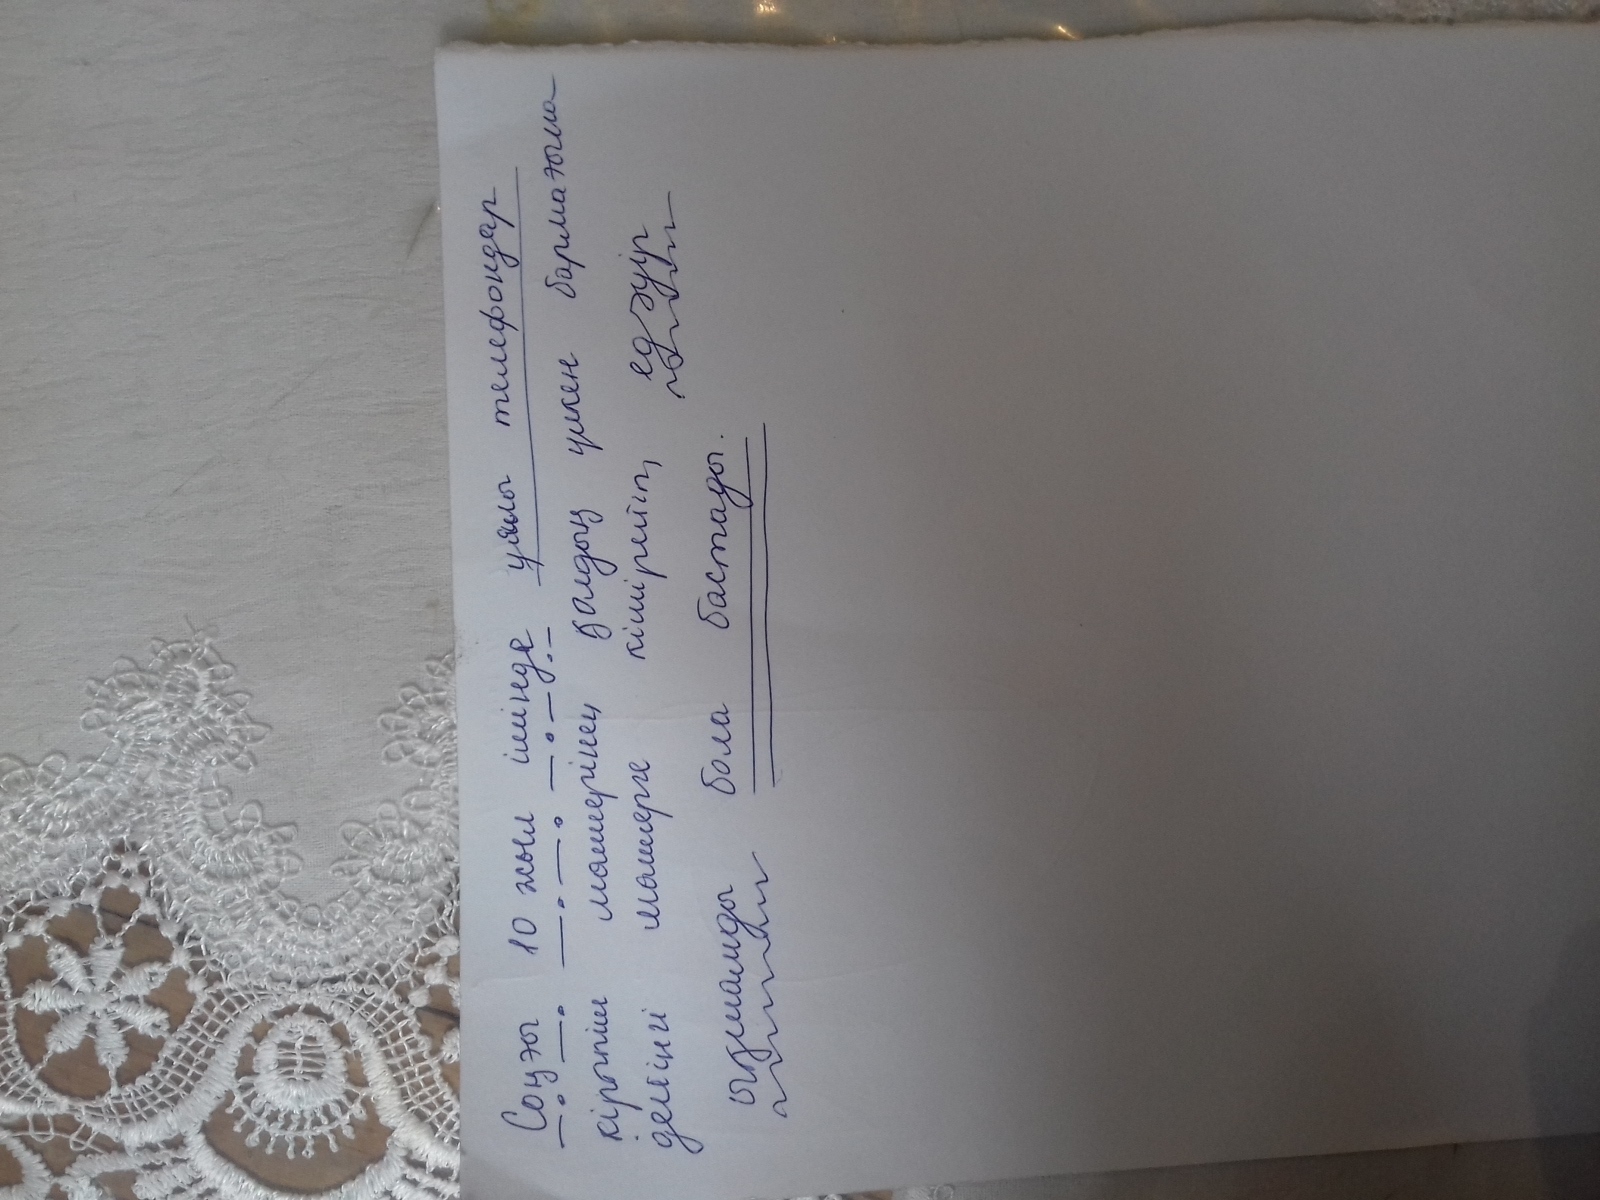 Соңғы 10 жыл ішінде ұялы телефондар
кірпіш мөшерінең қалдың үлкен бармағына
дейінгі мөшерге кішірейіп, едәуір
ықшамды бола бастады.